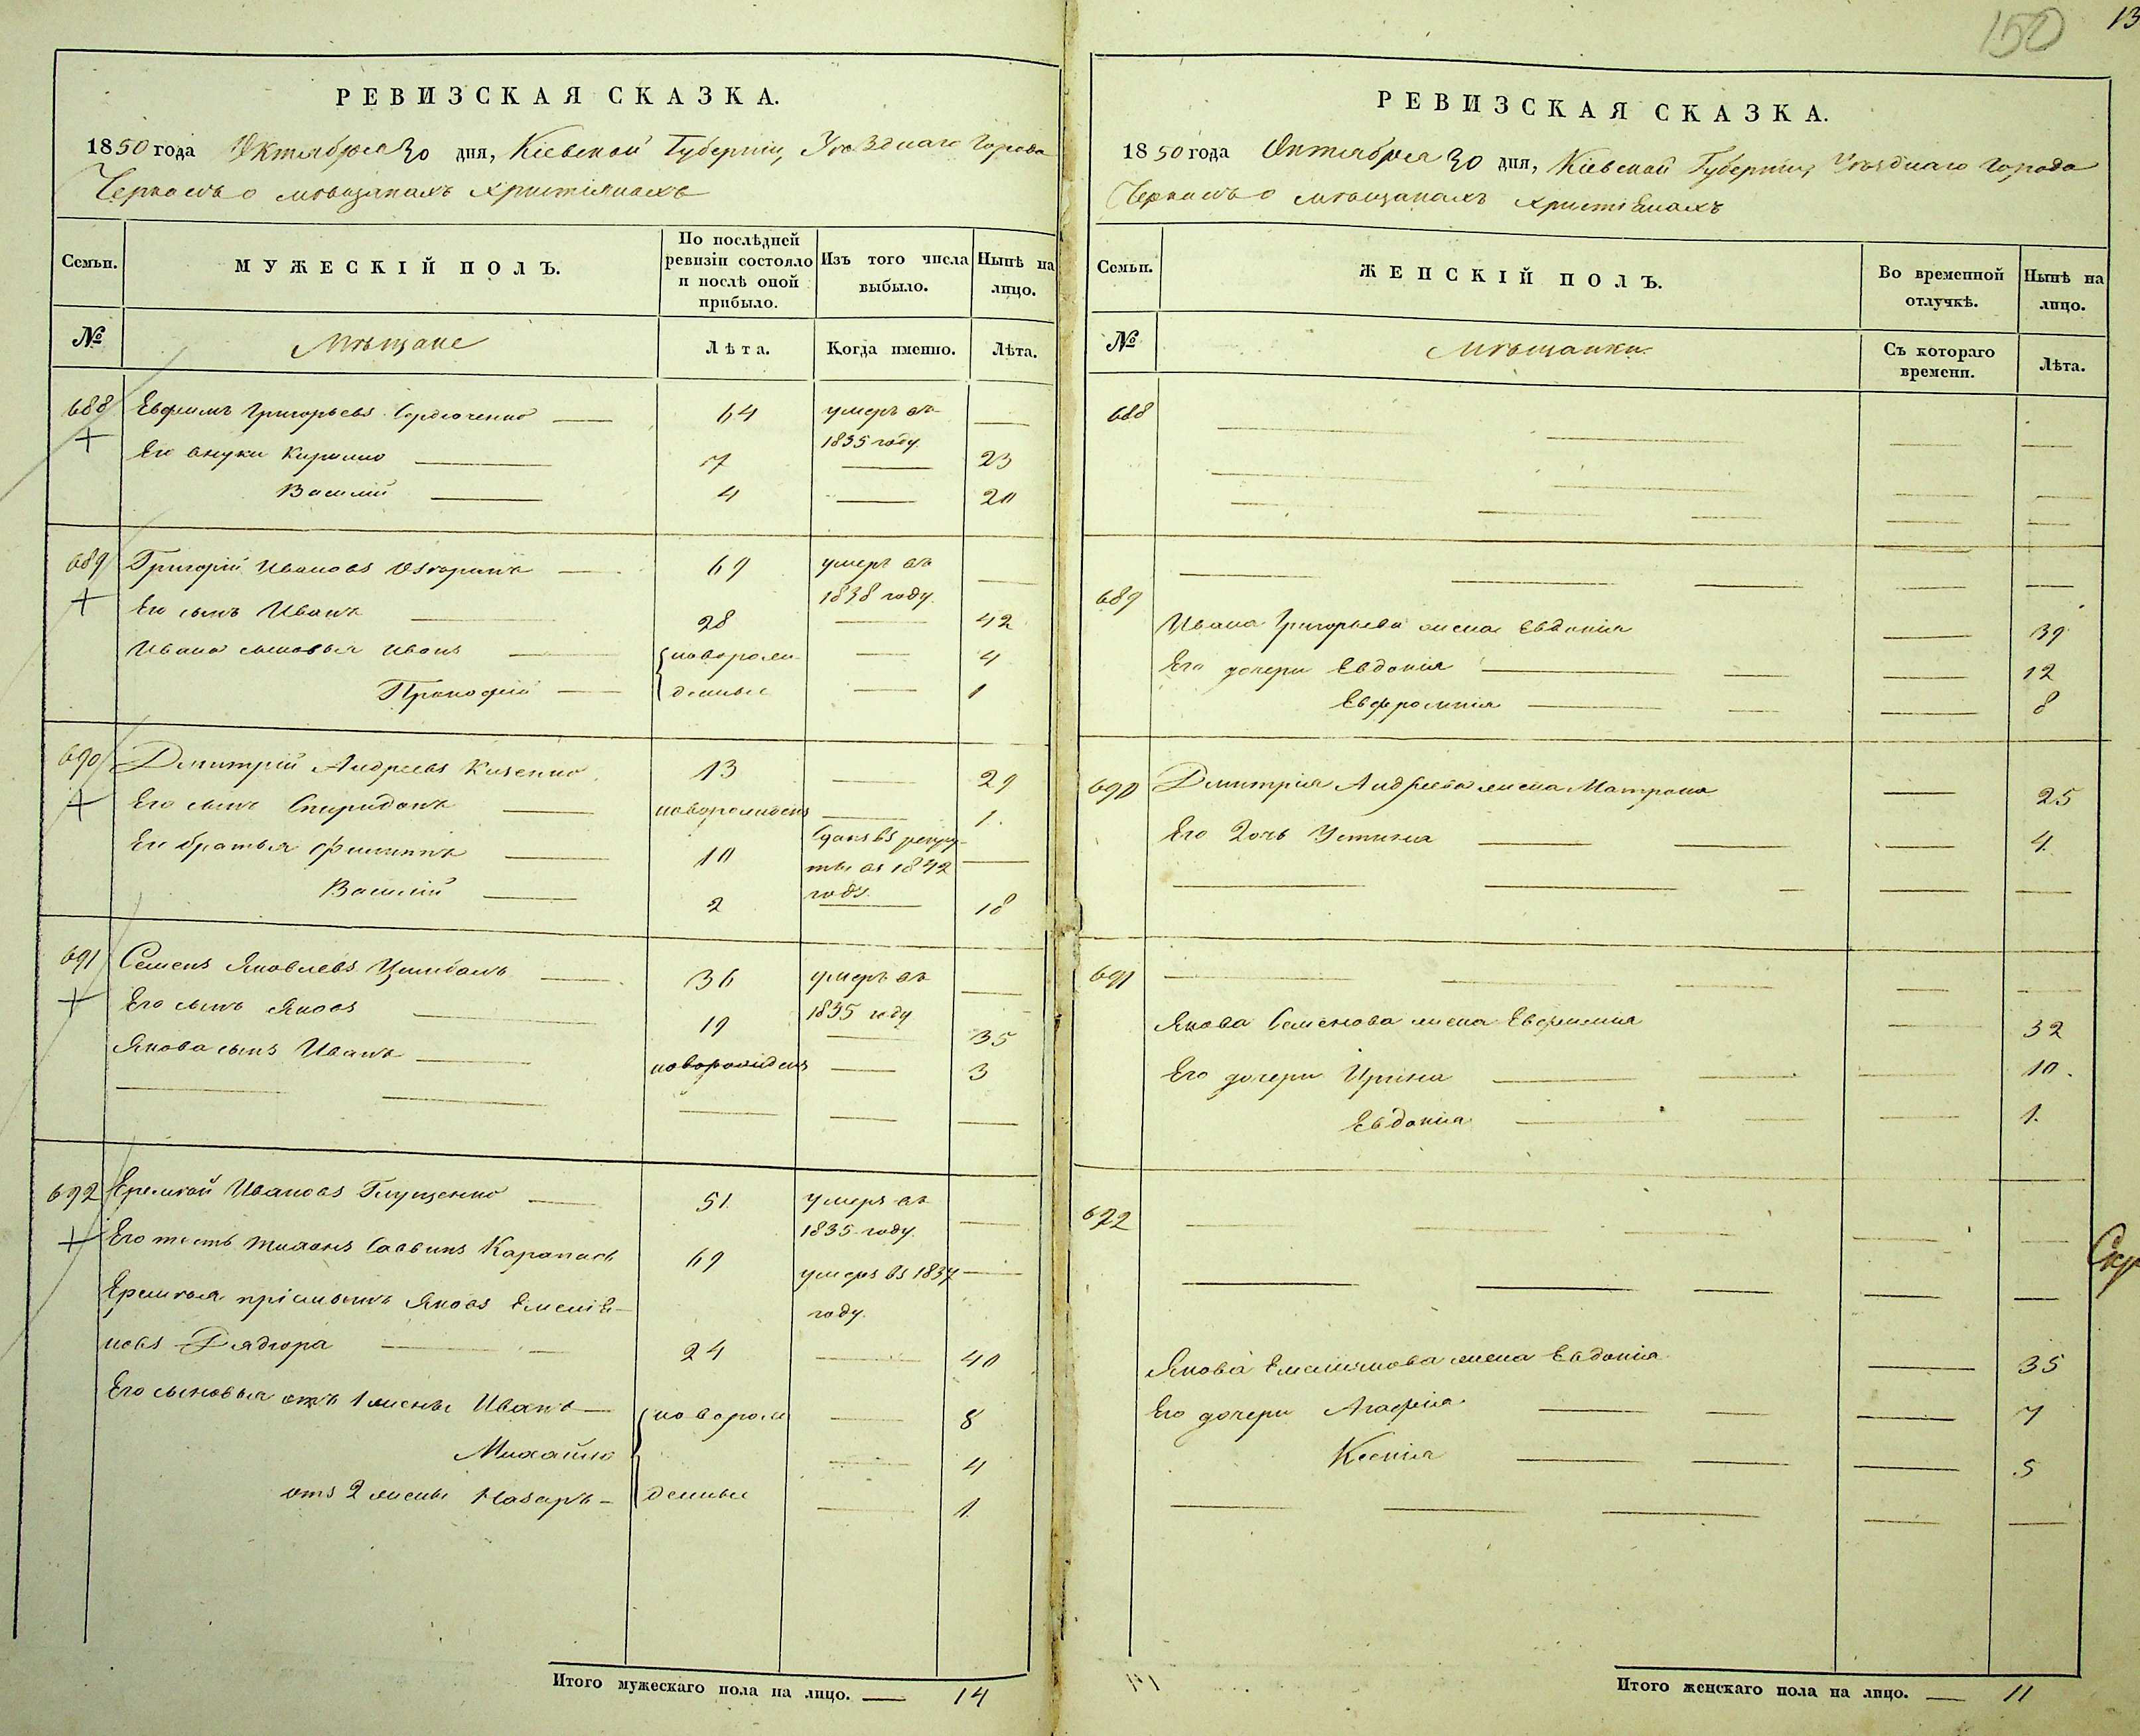 150 13
РЕВИЗСКАЯ СКАЗКА.
1850 года Октября 30 дня, Кіевской Губерніи, Уѣзднаго Города
Черкасъ о мѣщанахъ христіянахъ
Семьи.
МУЖЕСКІЙ ПОЛЪ.
По послѣдней
ревизіи состояло
и послѣ оной
прибыло.
Изъ того числа
выбыло.
Нынѣ на
лицо.
№
Мѣщане
Лѣта.
Когда именно.
Лѣта.
688 Евфимъ Григорьевъ 64 умеръ въ —
+ 1835 году.
Его внуки Кирило — 7 — 23
Василій — 4 — 20
689 Григорій Ивановъ 69 умеръ въ —
+ 1838 году.
Его сынъ Иванъ — 28 — 42
Ивана сыновья Иванъ — новорож — 4
Прокофій — денные — 1
690 Дмитрій Андреевъ 13 — 29
+ Его сынъ Спиридонъ — новорожденъ — 1.
Его братья Филиппъ — 10 сданъ въ рекру-
ты въ 1842 —
году.
Василій — 2 — 18
691 Семенъ Яковлевъ Цимбалъ — 36 умеръ въ —
+ 1835 году
Его сынъ Яковъ — 19 — 35
Якова сынъ Иванъ — новорожденъ — 3
692 Еремѣй Ивановъ Глущенко — 51. умеръ въ
1835 году. —
+ Его тесть Тихонъ Саввинъ 69 умеръ въ 1837 —
году.
Еремѣя пріемышъ Яковъ Емелія-
новъ Дядюра — 24 — 40
Его сыновья отъ 1 жены Иванъ — новорож — 8
Михайло — 4
отъ 2 жены Назаръ — денные — 1.
Итого мужескаго пола на лицо. — 14
РЕВИЗСКАЯ СКАЗКА.
1850 года Октября 30 дня, Кіевской Губерніи, Уѣзднаго Города
Черкасъ о мѣщанахъ христіянахъ
Семьи.
ЖЕНСКІЙ ПОЛЪ.
Во временной
отлучкѣ.
Нынѣ на
лицо.
№
Мѣщанки.
Съ котораго
времени.
Лѣта.
688
689
Ивана Григорьева жена Евдокія — 39
Его дочери Евдокія — 12
Евфросинія — 8
690 Дмитрія Андреева жена Матрона — 25
Его дочь Устинія — 4.
691
Якова Семенова жена Евфимія — 32
Его дочери Ирина — 10.
Евдокія — 1.
692
Якова Емельянова жена Евдокія — 35
Его дочери Агафія — 7
Ксенія — 5
Итого женскаго пола на лицо. — 11